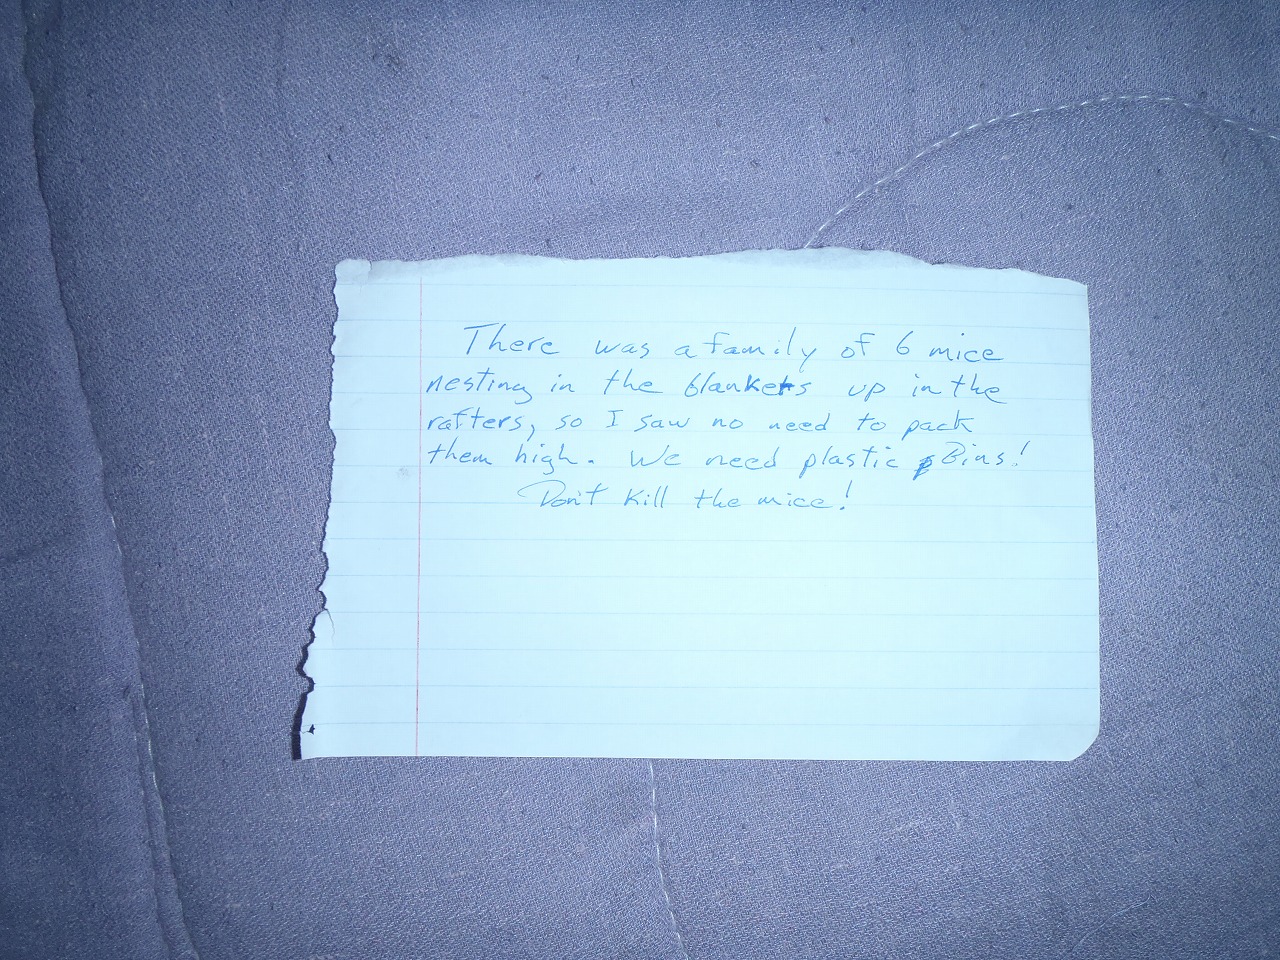 There was a family of 6 mice
nesting in the blankets up in the
rafters, so I saw no need to pack
them high. We need plastic Bins!
Don't kill the mice!